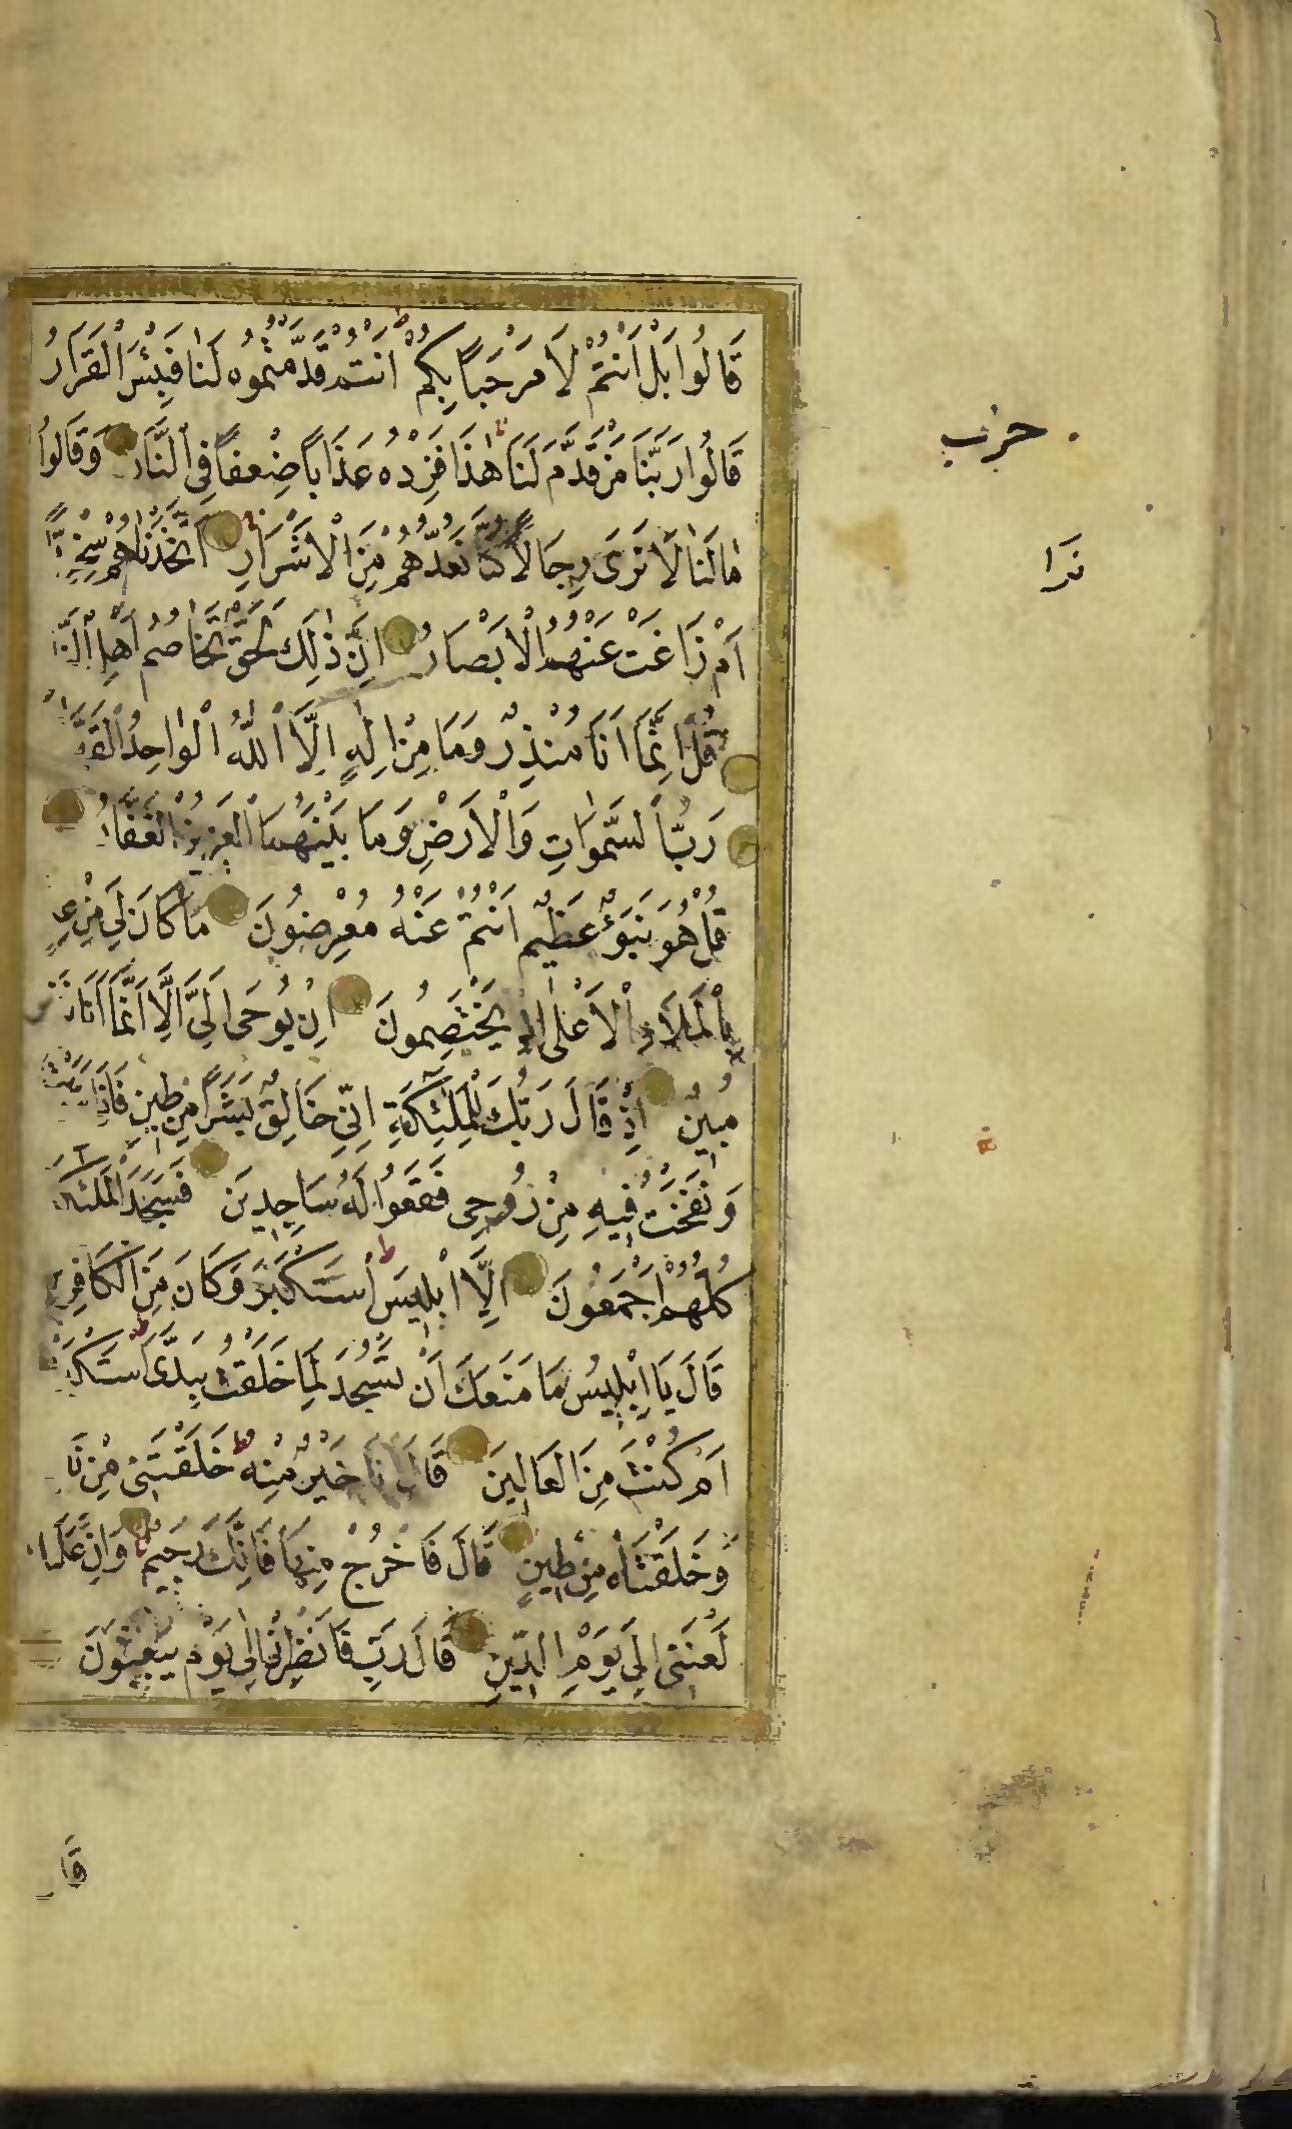 قَالُوا بَلْ اَنْتُمْ لَا مَرْحَبًا بِكُمْ اَنْتُمْ قَدَّمْتُمُوهُ لَنَا فَبِئْسَ الْقَرَارُ
قَالُوا رَبَّنَا مَنْ قَدَّمَ لَنَا هٰذَا فَزِدْهُ عَذَابًا ضِعْفًا فِى النَّارِ وَقَالُوا
مَا لَنَا لَا نَرَى رِجَالًا كُنَّا نَعُدُّهُمْ مِنَ الْاَشْرَارِ اَتَّخَذْنَاهُمْ سِخْرِيًّا
اَمْ زَاغَتْ عَنْهُمُ الْاَبْصَارُ اِنَّ ذٰلِكَ لَحَقٌّ تَخَاصُمُ اَهْلِ
قُلْ اِنَّمَا اَنَا مُنْذِرٌ وَمَا مِنْ اِلٰهٍ اِلَّا اللّٰهُ الْوَاحِدُ الْقَهَّارُ
رَبُّ السَّمٰوَاتِ وَالْاَرْضِ وَمَا بَيْنَهُمَا الْعَزِيزُ الْغَفَّارُ
قُلْ هُوَ نَبَؤٌ عَظِيمٌ اَنْتُمْ عَنْهُ مُعْرِضُونَ مَا كَانَ لِيَ مِنْ عِلْمٍ
بِالْمَلَاِ الْاَعْلٰى اِذْ يَخْتَصِمُونَ اِنْ يُوحَى اِلَيَّ اِلَّا اَنَّمَا اَنَا
مُبِينٌ اِذْ قَالَ رَبُّكَ لِلْمَلٰئِكَةِ اِنِّى خَالِقٌ بَشَرًا مِنْ طِينٍ فَاِذَا
وَنَفَخْتُ فِيهِ مِنْ رُوحِى فَقَعُوا لَهُ سَاجِدِينَ فَسَجَدَ الْمَلٰئِكَةُ
كُلُّهُمْ اَجْمَعُونَ اِلَّا اِبْلِيسَ اسْتَكْبَرَ وَكَانَ مِنَ الْكَافِرِينَ
قَالَ يَا اِبْلِيسُ مَا مَنَعَكَ اَنْ تَسْجُدَ لِمَا خَلَقْتُ بِيَدَيَّ اَسْتَكْبَرْتَ
اَمْ كُنْتَ مِنَ الْعَالِينَ قَالَ اَنَا خَيْرٌ مِنْهُ خَلَقْتَنِى مِنْ نَارٍ
وَخَلَقْتَهُ مِنْ طِينٍ قَالَ فَاخْرُجْ مِنْهَا فَاِنَّكَ رَجِيمٌ وَاِنَّ عَلَيْكَ
لَعْنَتِى اِلَى يَوْمِ الدِّينِ قَالَ رَبِّ فَاَنْظِرْنِى اِلٰى يَوْمِ يُبْعَثُونَ
حزب
قَا